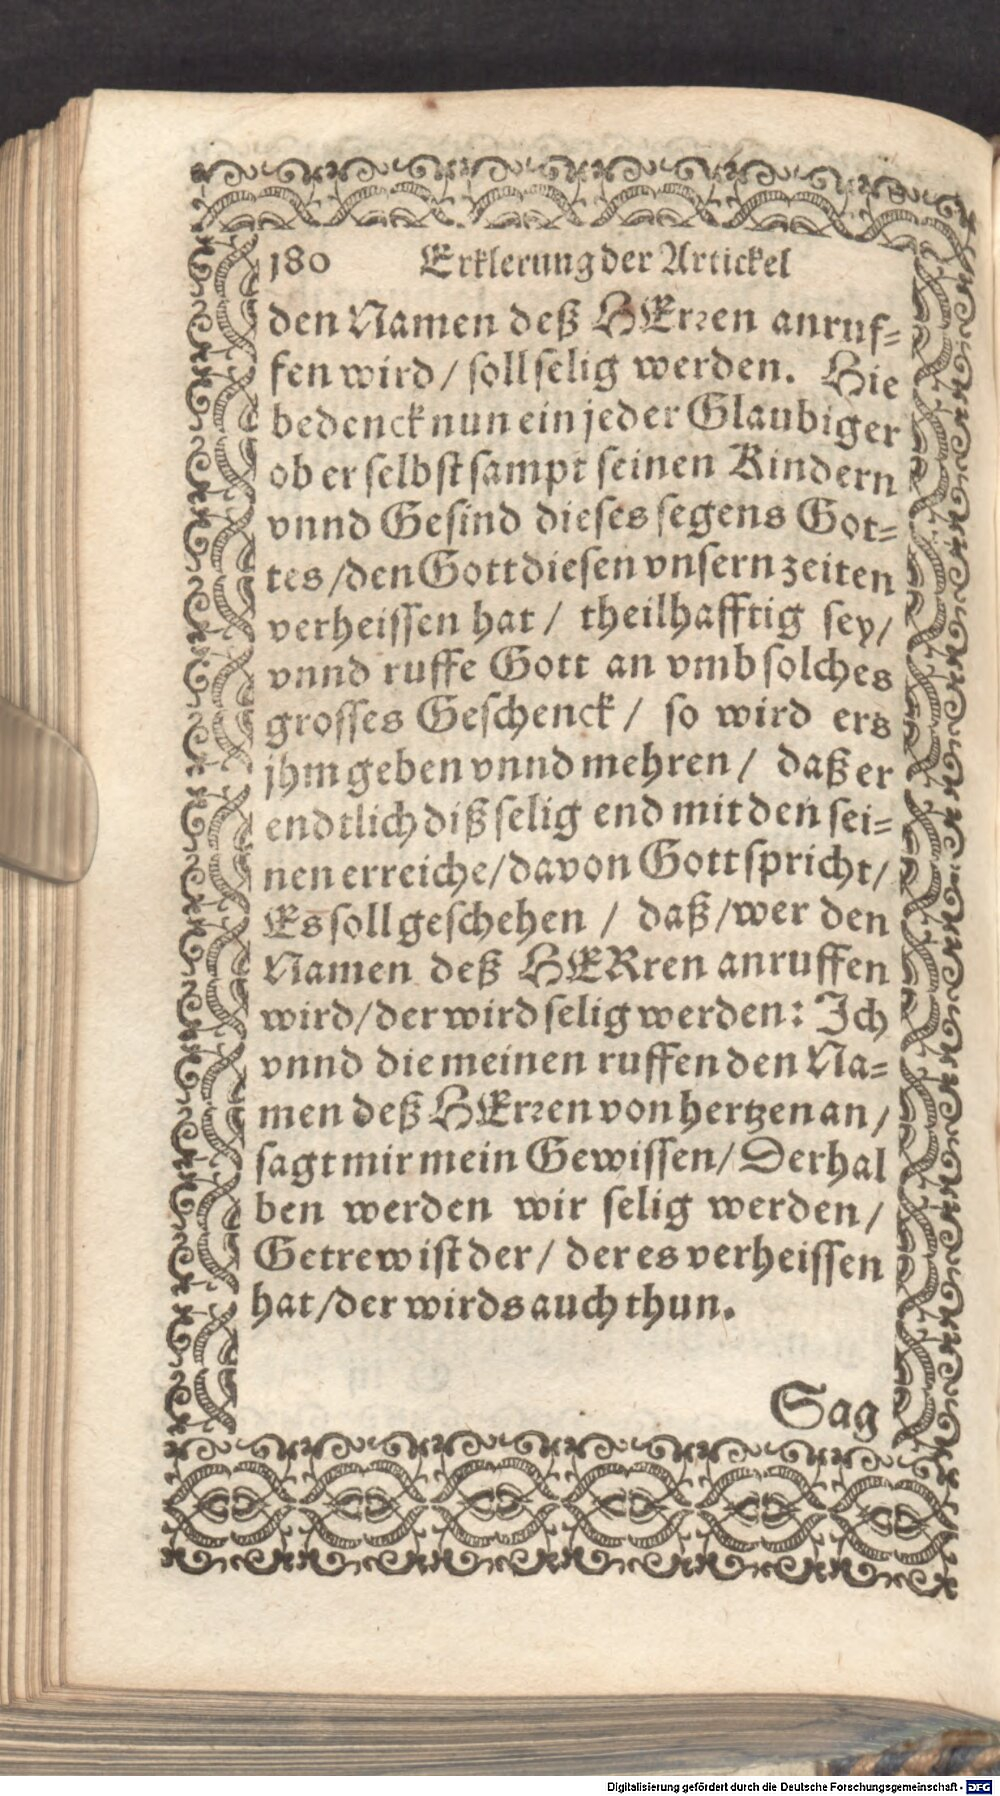 180 Erklerung der Artickel
den Namen deß HErꝛen anruf⸗
fen wird / soll selig werden. Hie
bedenck nun ein jeder Glaubiger
ob er selbst sampt seinen Kindern
vnnd Gesind dieses segens Got⸗
tes / den Gott diesen vnsern zeiten
verheissen hat / theilhafftig sey /
vnnd ruffe Gott an vmb solches
grosses Geschenck / so wird ers
jhm geben vnnd mehren / daß er
endtlich diß selig end mit den sei⸗
nen erreiche / davon Gott spricht /
Es soll geschehen / daß / wer den
Namen deß HERren anruffen
wird / der wird selig werden: Ich
vnnd die meinen ruffen den Na⸗
men deß HErꝛen von hertzen an /
sagt mir mein Gewissen / Derhal
ben werden wir selig werden /
Getrew ist der / der es verheissen
hat / der wirds auch thun.
Sag
Digitalisierung gefördert durch die Deutsche Forschungsgemeinschaft - DFG